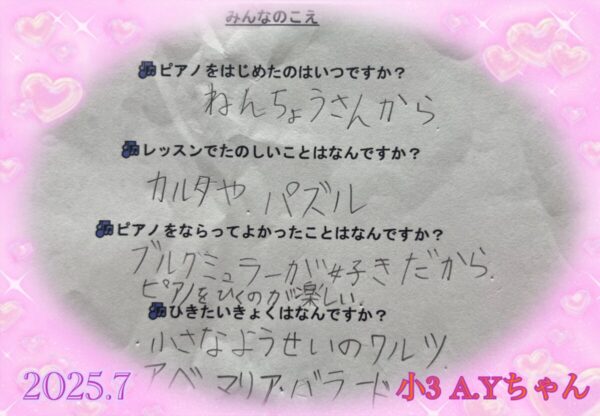 みんなのこえ
ピアノをはじめたのはいつですか?
ねんちょうさんから
レッスンでたのしいことはなんですか?
カルタや、パズル
ピアノをならってよかったことはなんですか?
ブルグミュラーが好きだから、
ピアノをひくのが楽しい。
ひきたいきょくはなんですか?
・小さなようせいのワルツ
アベマリア・バラード
2025.7
小3 A.Yちゃん